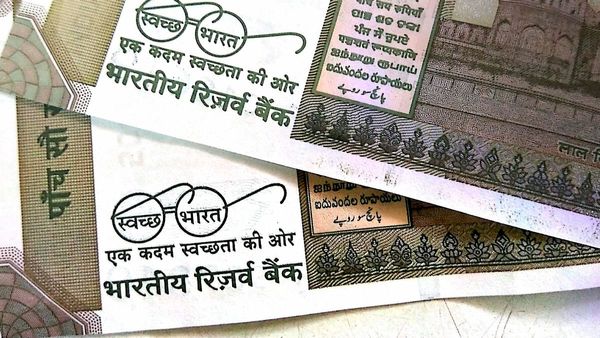 स्वच्छ भारत
एक कदम स्वच्छता की ओर
भारतीय रिज़र्व बैंक
पाँच सय रुपियाँ
ପାଞ୍ଚ ଶତ ଟଙ୍କା
ਪੰਜ ਸੌ ਰੁਪਏ
पञ्चशतं रूप्यकाणि
ஐந்நூறு ரூபாய்
ఐదువందల రూపాయలు
پانچ سو روپے
लाल
पाँच सौ
स्वच्छ भारत
एक कदम स्वच्छता की ओर
भारतीय रिज़र्व बैंक
ஐந்நூறு ரூபாய்
ఐదువందల రూపాయలు
پانچ سو روپے